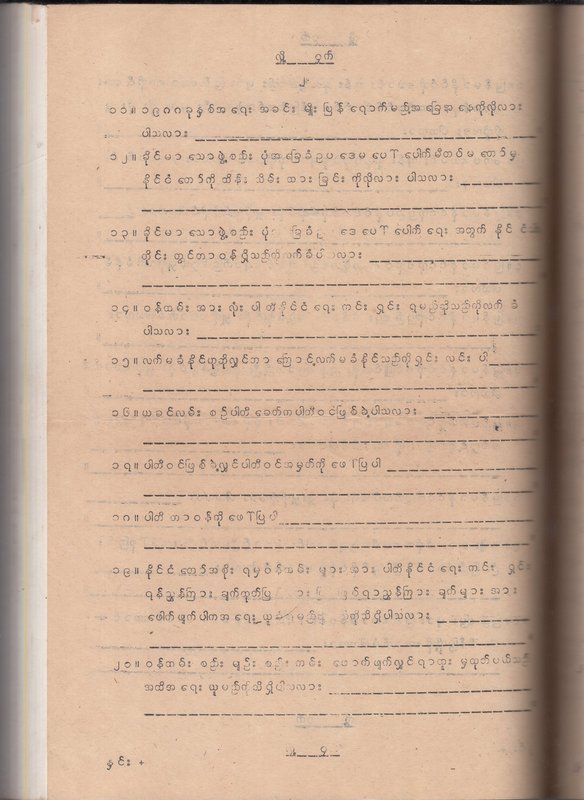 လျှို့ ဝှက်
၂
၁၁။ ၁၉၈၈ ခုနှစ်အရေး အခင်း မျိုး ပြန် ရောက်မည့်အခြေအနေကိုလိုလား
ပါသလား
၁၂။ ခိုင်မာသောဖွဲ့စည်း ပုံအခြေခံဥပဒေမပေါ်ပေါက်မီတပ်မတော်မှ
နိုင်ငံတော်ကို ထိန်း သိမ်း ထားခြင်း ကိုလိုလား ပါသလား
၁၃။ ခိုင်မာသောဖွဲ့စည်း ပုံ ခြေခံဥ ဒေပေါ်ပေါက်ရေး အတွက် နိုင်ငံသား
တိုင်း တွင်တာဝန်ရှိသည်ကိုလက်ခံပါသလား
၁၄။ ဝန်ထမ်း အားလုံး ပါတီနိုင်ငံရေး ကင်း ရှင်း ရမည်ဆိုသည်ကိုလက်ခံ
ပါသလား
၁၅။ လက်မခံနိုင်ဟုဆိုလျှင်ဘာကြောင့်လက်မခံနိုင်သည်ကိုရှင်း လင်း ပါ
၁၆။ ယခင်လမ်း စဉ်ပါတီခေတ်ကပါတီဝင်ဖြစ်ခဲ့ပါသလား
၁၇။ ပါတီဝင်ဖြစ်ခဲ့လျှင်ပါတီဝင်အမှတ်ကိုဖော်ပြပါ
၁၈။ ပါတီတာဝန်ကိုဖော်ပြပါ
၁၉။ နိုင်ငံတော်အစိုး ရမှဝန်ထမ်း များ အား ပါတီနိုင်ငံရေး ကင်း ရှင်း
ရန်ညွှန်ကြား ချက်ထုတ်ပြ ညွှန်ကြား ချက်များ အား
ဖောက်ဖျက်ပါကအရေး ယူခံရမည်ကို သိရှိပါသလား
၂၁။ ဝန်ထမ်း စည်း မျဉ်း စည်း ကမ်း ဖောက်ဖျက်လျှင်ရာထူး မှထုတ်ပယ်သည်
အထိအရေး ယူမည်ကိုသိရှိပါသလား
နှင်း +